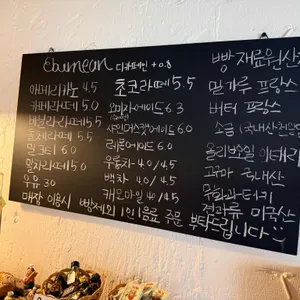 Ebumean 디카페인 +0.8
아메리카노 4.5
카페라떼 5.0
바닐라라떼 5.5
돌체라떼 5.5
밀크티 6.0
말차라떼 5.0
우유 3.0
초코라떼 5.5
오미자에이드 6.3
샤인머스캣에이드 6.0
레몬에이드 6.0
우롱차 4.0/4.5
백차 4.0/4.5
캐모마일 4.0/4.5
빵 재료원산
밀가루 프랑스
버터 프랑스
소금 (국내산
올리브오일 이태리
고구마 국내산
무화과 터키
견과류 미국산
매장 이용시 빵제외 1인 1음료 주문 부탁드립니다